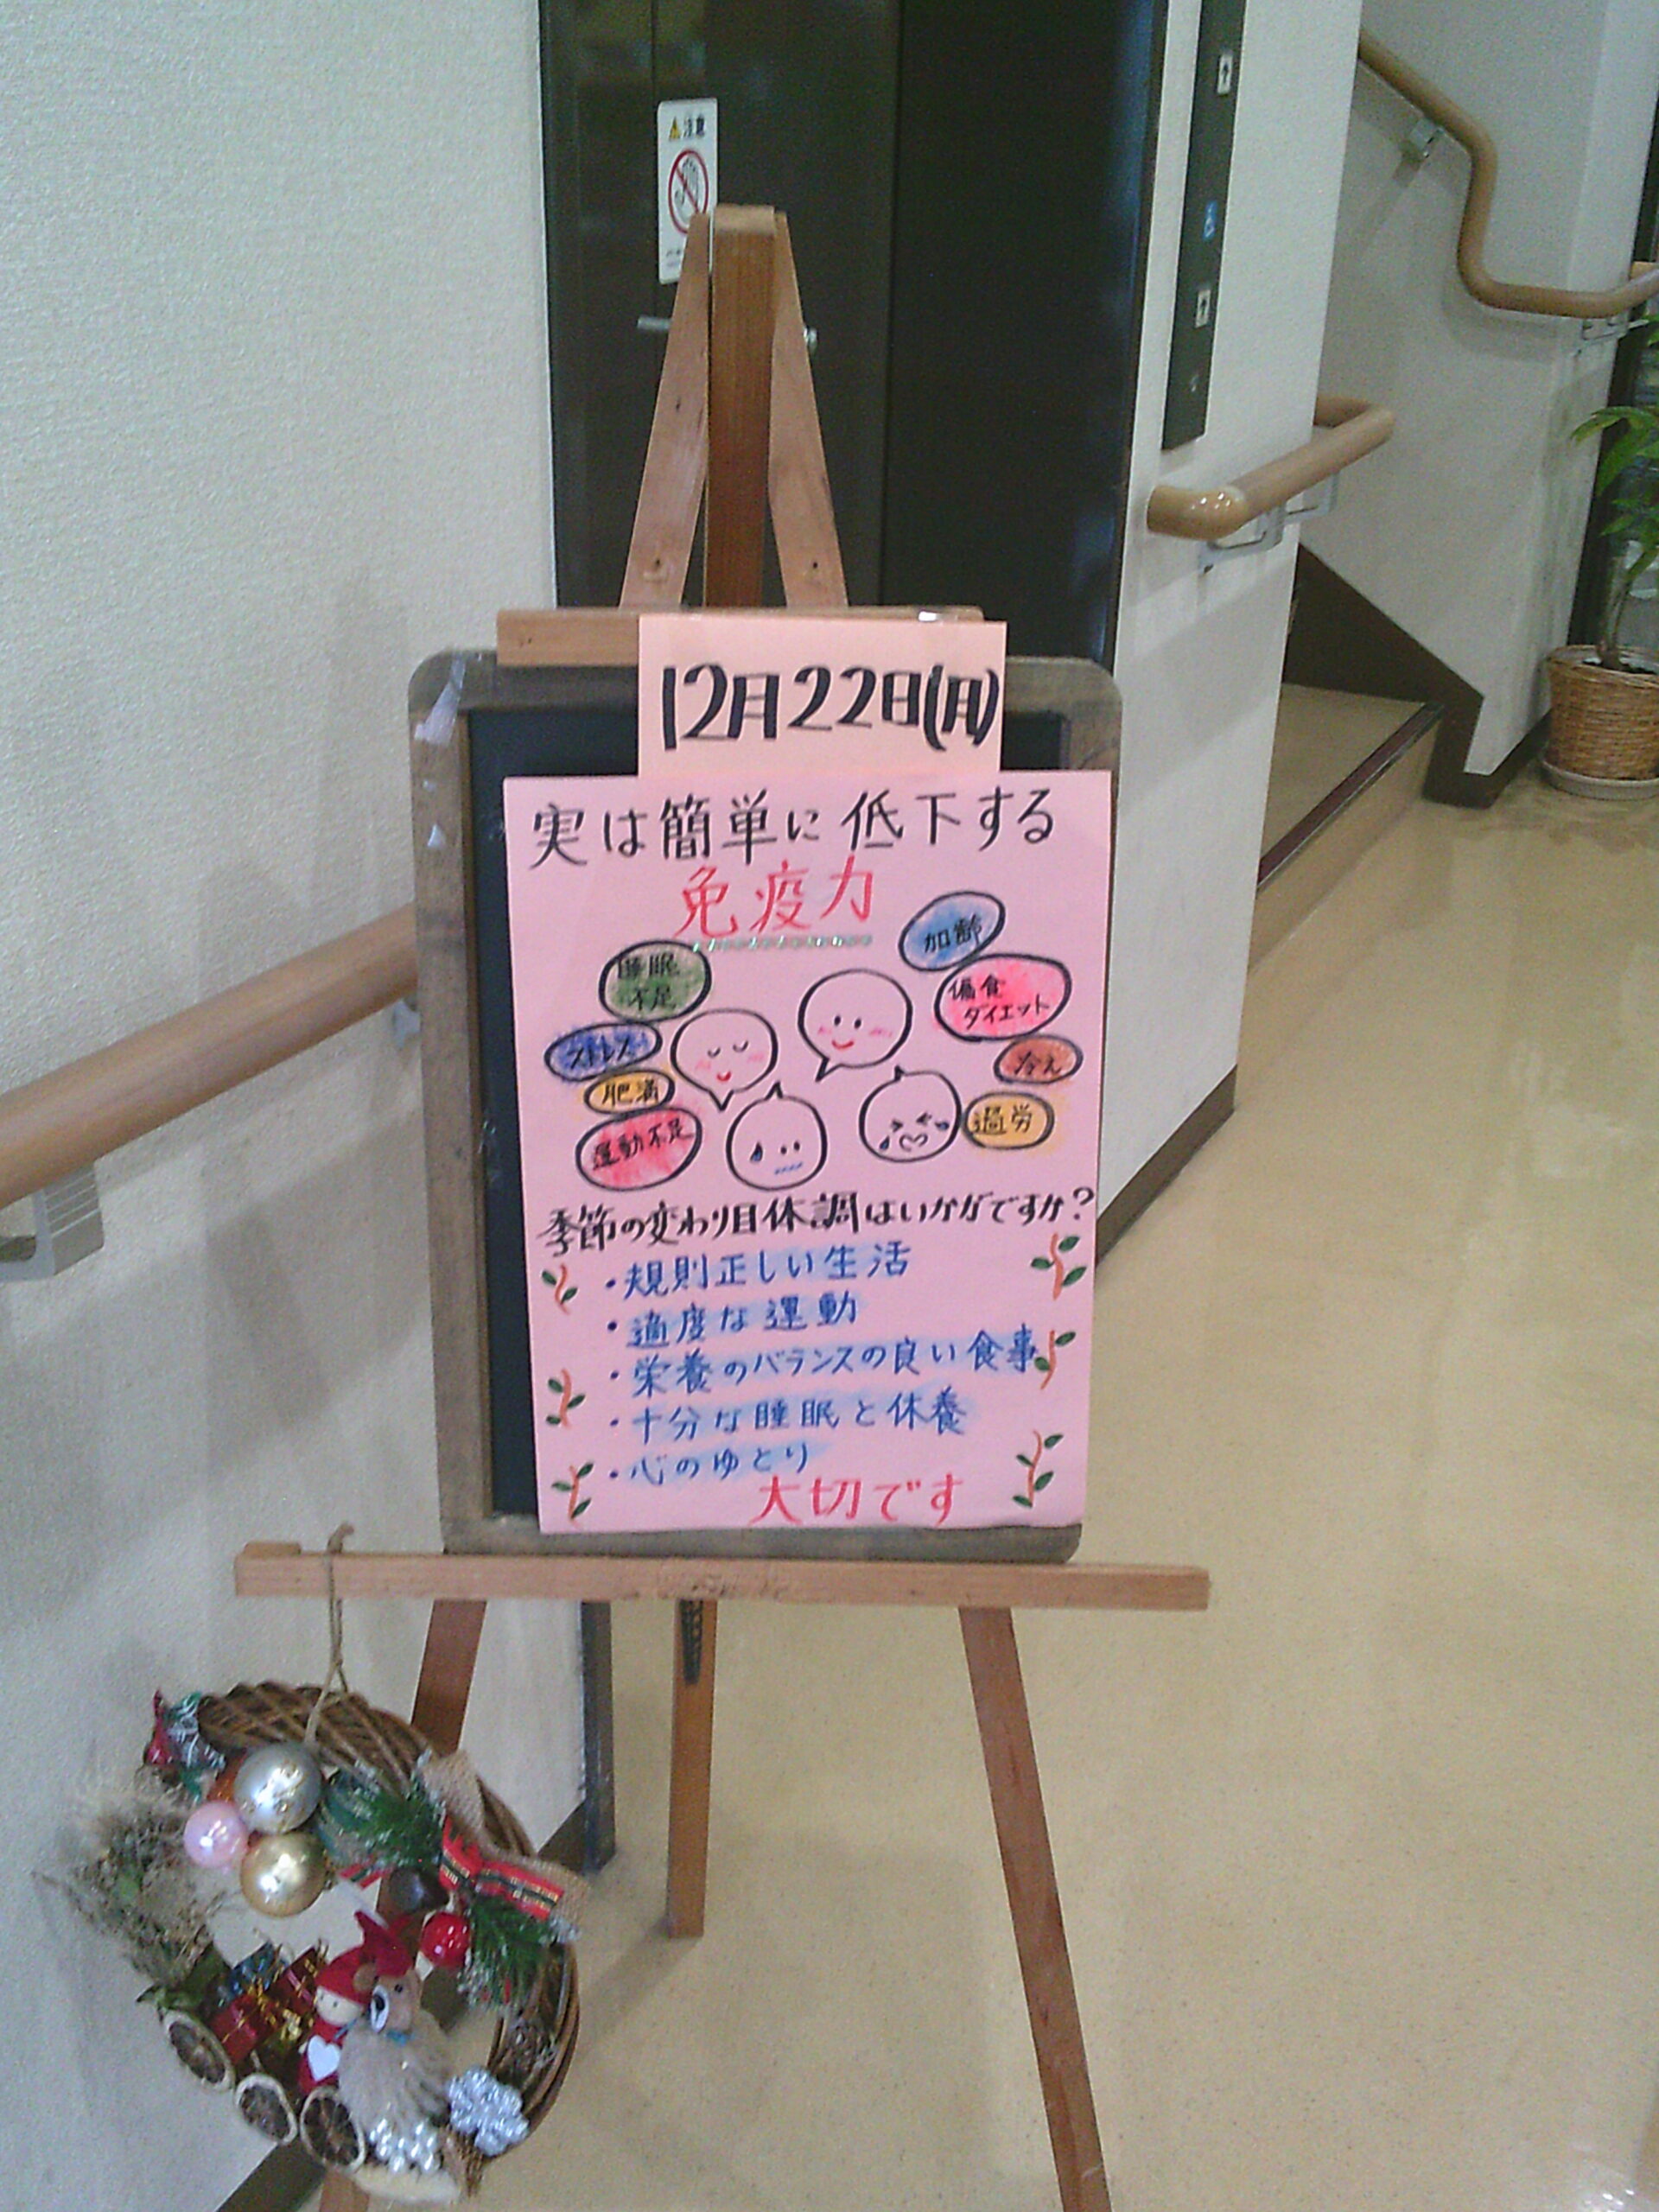 注意
12月22日(月)
実は簡単に低下する
免疫力
加齢
睡眠
不足
偏食
ダイエット
ストレス
冷え
肥満
過労
運動不足
季節の変わり目体調はいかがですか?
・規則正しい生活
・適度な運動
・栄養のバランスの良い食事
・十分な睡眠と休養
・心のゆとり
大切です